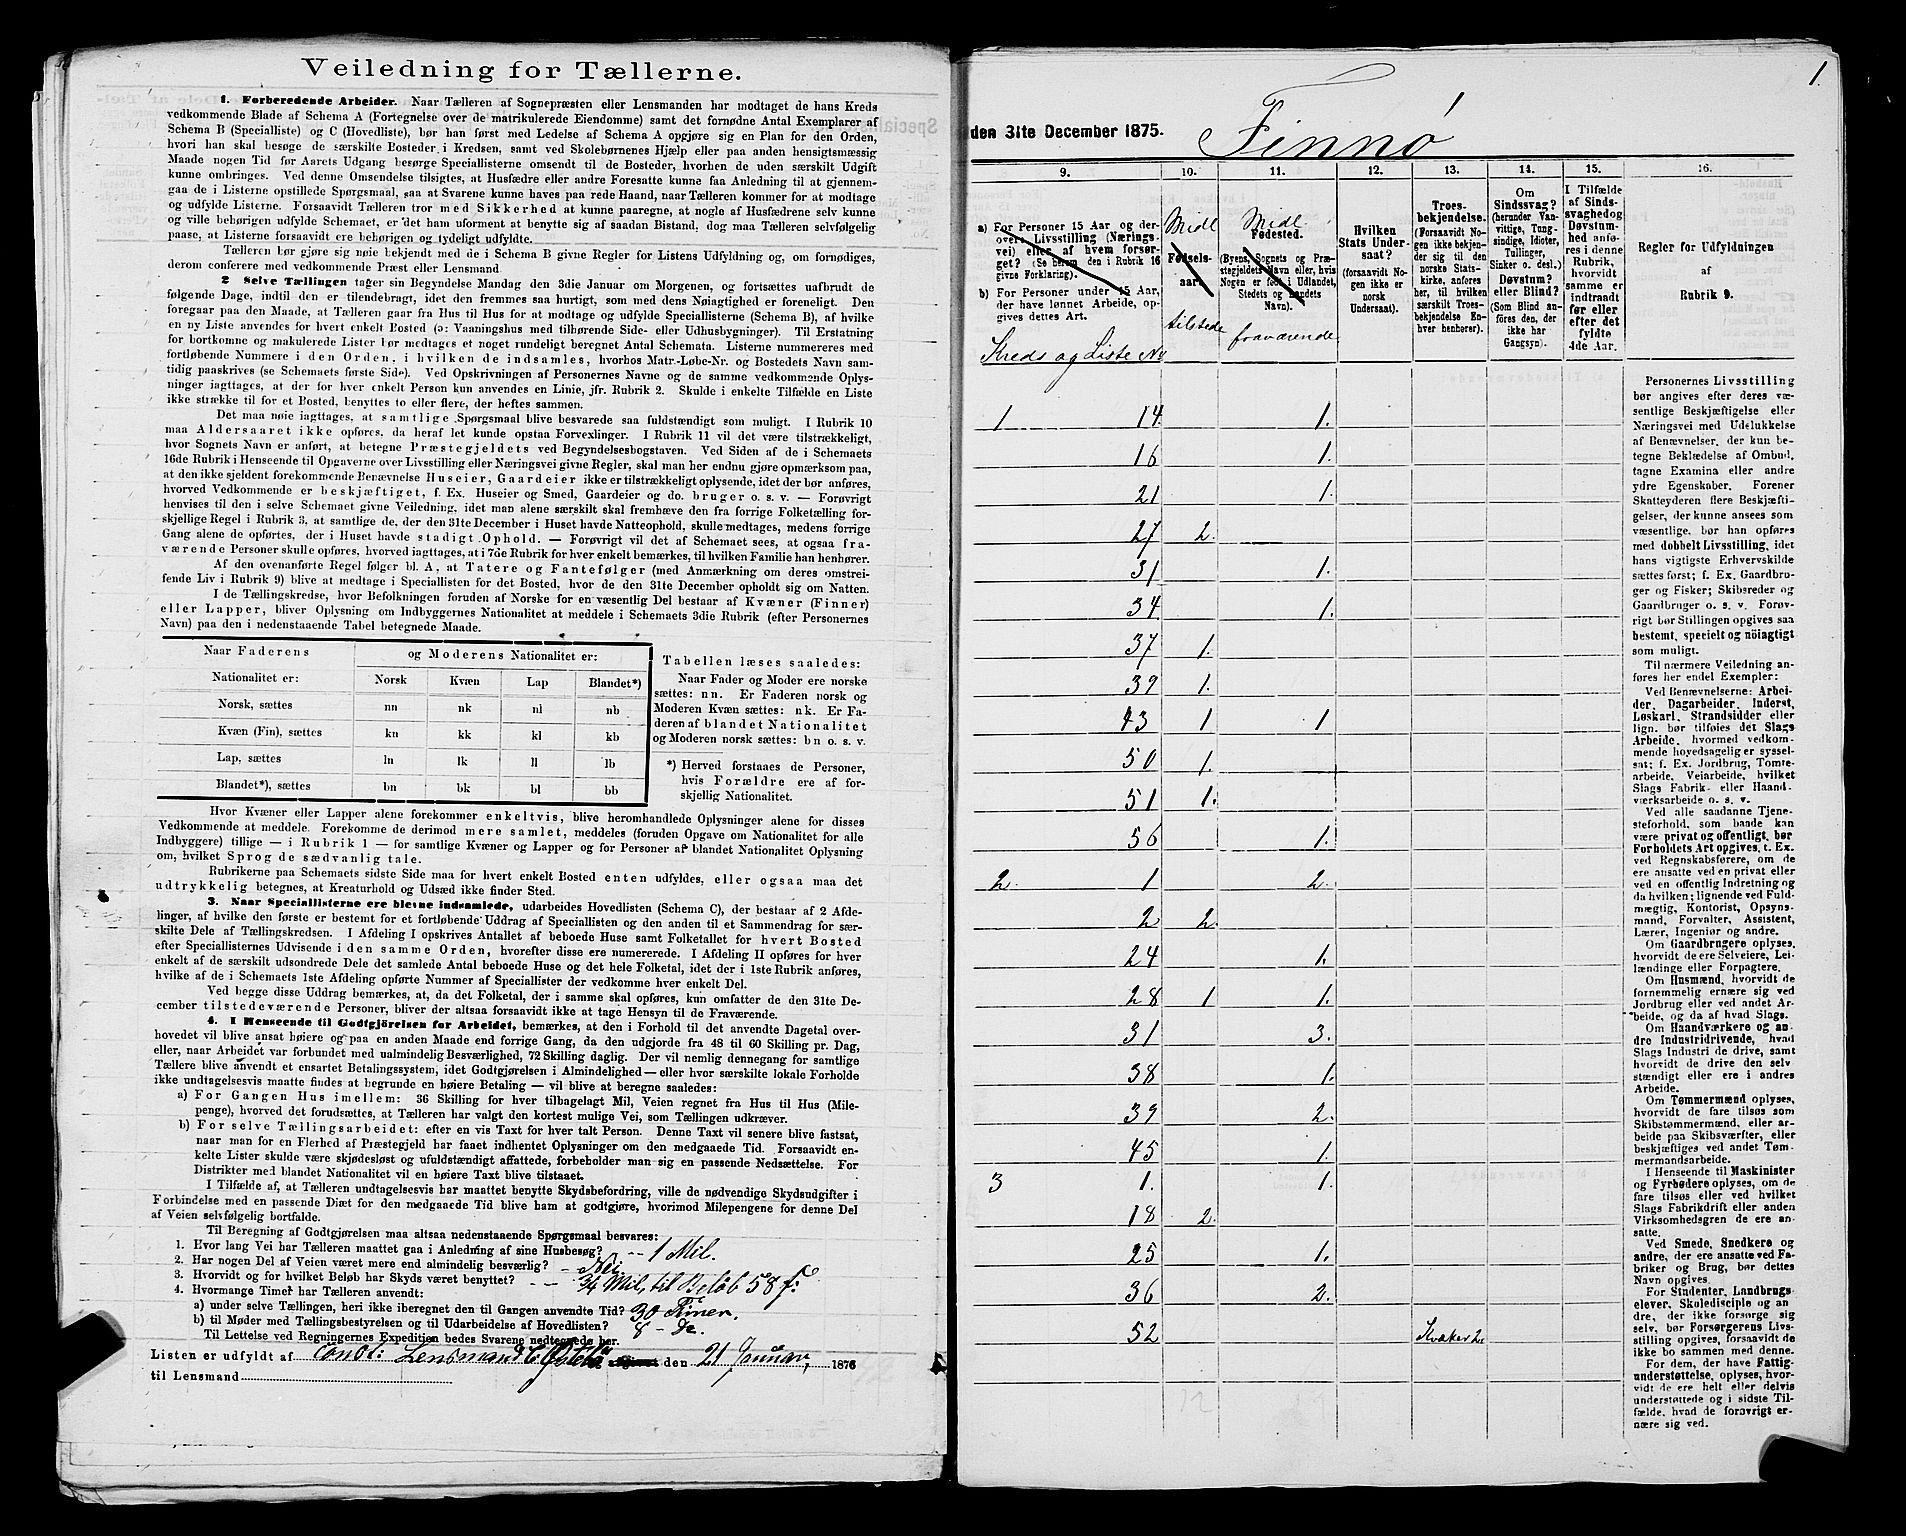 Veiledning for Tællerne.
1. Forberedende Arbeider. Naar Tælleren af Sognepræsten eller Lensmanden har modtaget de hans Kreds
vedkommende Blade af Schema A (Fortegnelse over de matrikulerede Eiendomme) samt det fornødne Antal Exemplarer af
Schema B (Specialliste) og C (Hovedliste), bør han først med Ledelse af Schema A opgjøre sig en Plan for den Orden,
hvori han skal besøge de særskilte Bosteder i Kredsen, samt ved Skolebørnenes Hjælp eller paa anden hensigtsmæssig
Maade nogen Tid før Aarets Udgang besørge Speciallisterne omsendt til de Bosteder, hvorhen de uden særskilt Udgift
kunne ombringes. Ved denne Omsendelse tilsigtes, at Husfædre eller andre Foresatte kunne faa Anledning til at gjennem-
gaa de i Listerne opstillede Spørgsmaal, saa at Svarene kunne haves paa rede Haand, naar Tælleren kommer for at modtage
og udfylde Listerne. Forsaavidt Tælleren tror med Sikkerhed at kunne paaregne, at nogle af Husfædrene selv kunne
og ville behørigen udfylde Schemaet, er det ham uforment at benytte sig af saadan Bistand, dog maa Tælleren selvfølgelig
paase, at Listerne forsaavidt ere behørigen og tydeligt udfyldte.
Tælleren bør gjøre sig nøie bekjendt med de i Schema B givne Regler for Listens Udfyldning og, om fornødiges,
derom conferere med vedkommende Præst eller Lensmand.
2 Selve Tællingen tager sin Begyndelse Mandag den 3die Januar om Morgenen, og fortsættes uafbrudt de
følgende Dage, indtil den er tilendebragt, idet den fremmes saa hurtigt, som med dens Nøiagtighed er foreneligt. Den
foregaar paa den Maade, at Tælleren gaar fra Hus til Hus for at modtage og udfylde Speciallisterne (Schema B), af hvilke
en ny Liste anvendes for hvert enkelt Bosted (ɔ: Vaaningshus med tilhørende Side- eller Udhusbygninger). Til Erstatning
for bortkomne og makulerede Lister før medtages et noget rundeligt beregnet Antal Schemata. Listerne nummereres med
fortløbende Nummere i den Orden, i hvilken de indsamles, hvorhos Matr.-Løbe-Nr. og Bostedets Navn sam-
tidig paaskrives (se Schemaets første Side). Ved Opskrivningen af Personernes Navne og de samme vedkommende Oplys-
ninger iagttages, at der for hver enkelt Person kun anvendes en Linie, jfr. Rubrik 2. Skulde i enkelte Tilfælde en Liste
ikke strække til for et Bosted, benyttes to eller flere, der heftes sammen.
Det maa nøie iagttages, at samtlige Spørgsmaal blive besvarede saa fuldstændigt som muligt. I Rubrik 10
maa Aldersaaret ikke opføres, da heraf let kunde opstaa Forvexlinger. I Rubrik 11 vil det være tilstrækkeligt,
hvor Sognets Navn er anført, at betegne Præstegjeldets ved Begyndelsesbogstaven. Ved Siden af de i Schemaets
16de Rubrik i Henseende til Opgaverne over Livsstilling eller Næringsvei givne Regler, skal man her endnu gjøre opmærksom paa,
at den ikke sjeldent forekommende Benævnelse Huseier, Gaardeier ikke er tilstrækkeligt oplysende, idet der bør anføres,
hvorved Vedkommende er beskjæftiget, f. Ex. Huseier og Smed, Gaardeier og do. bruger o. s. v. — Forøvrigt
henvises til den i selve Schemaet givne Veiledning, idet man alene særskilt skal fremhæve den fra forrige Folketælling for-
skjellige Regel i Rubrik 3, at samtlige de, der den 31te December i Huset havde Natteophold, skulle medtages, medens forrige
Gang alene de opførtes, der i Huset havde stadigt Ophold. — Forøvrigt vil det af Schemaet sees, at ogsaa fra-
værende Personer skulle opføres, hvorved iagttages, at i 7de Rubrik for hver enkelt bemærkes, til hvilken Familie han henhører.
Af den ovenanførte Regel følger bl. A, at Tatere og Fantefølger (med Anmærkning om deres omstrei-
fende Liv i Rubrik 9) blive at medtage i Speciallisten for det Bosted, hvor de den 31te December opholdt sig om Natten.
I de Tællingskredse, hvor Befolkningen foruden af Norske for en væsentlig Del bestaar af Kvæner (Finner)
eller Lapper, bliver Oplysning om Indbyggernes Nationalitet at meddele i Schemaets 3die Rubrik (efter Personernes
Navn) paa den i nedenstaaende Tabel betegnede Maade.
Naar Faderens og Moderens Nationalitet er:
Nationalitet er: Norsk Kvæn Lap Blandet*)
Norsk, sættes nn nk nl nb
Kvæn (Fin), sættes kn kk kl kb
Lap, sættes ln lk ll lb
Blandet*), sættes bn bk bl bb
Tabellen læses saaledes:
Naar Fader og Moder ere norske
sættes: nn. Er Faderen norsk og
Moderen Kvæn sættes: nk. Er Fa-
deren af blandet Nationalitet
og Moderen norsk sættes: bn o. s. v.
*) Herved forstaaes de Personer,
hvis Forældre ere af for-
skjellig Nationalitet.
Hvor Kvæner eller Lapper alene forekommer enkeltvis, blive heromhandlede Oplysninger alene for disses
Vedkommende at meddele. Forekomme de derimod mere samlet, meddeles (foruden Opgave om Nationalitet for alle
Indbyggere) tillige — i Rubrik 1 — for samtlige Kvæner og Lapper og for Personer af blandet Nationalitet Oplysning
om, hvilket Sprog de sædvanlig tale.
Rubrikerne paa Schemaets sidste Side maa for hvert enkelt Bosted enten udfyldes, eller ogsaa maa det
udtrykkelig betegnes, at Kreaturhold og Udsæd ikke finder Sted.
3. Naar Speciallisterne ere blevne indsamlede, udarbeides Hovedlisten (Schema C), der bestaar af 2 Afde-
linger, af hvilke den første er bestemt for et fortløbende Uddrag af Speciallisten og den anden til et Sammendrag for sær-
skilte Dele af Tællingskredsen. I Afdeling I opskrives Antallet af beboede Huse samt Folketallet for hvert Bosted
efter Speciallisternes Udvisende i den samme Orden, hvorefter disse ere numererede. I Afdeling II opføres for hver
enkelt af de særskilt udsondrede Dele det samlede Antal beboede Huse og det hele Folketal, idet der i 1ste Rubrik anføres,
hvilke af de i Schemaets 1ste Afdeling opførte Nummer af Speciallister der vedkomme hver enkelt Del.
Ved begge disse Uddrag bemærkes, at, da det Folketal, der i samme skal opføres, kun omfatter de den 31te De-
cember tilstedeværende Personer, bliver der altsaa forsaavidt ikke at tage Hensyn til de Fraværende.
4. I Henseende til Godtgjörelsen for Arbeidet, bemærkes, at den i Forhold til det anvendte Dagetal over-
hovedet vil blive ansat høiere og paa en anden Maade end forrige Gang, da den udgjorde fra 48 til 60 Skilling pr. Dag,
eller, naar Arbeidet var forbundet med ualmindelig Besværlighed, 72 Skilling daglig. Der vil nemlig dennegang for samtlige
Tællere blive anvendt et ensartet Betalingssystem, idet Godtgjørelsen i Almindelighed — eller hvor særskilte lokale Forholde
ikke undtagelsesvis maatte findes at begrunde en høiere Betaling — vil blive at beregne saaledes:
a) For Gangen Hus imellem: 36 Skilling for hver tilbagelagt Mil, Veien regnet fra Hus til Hus (Mile-
penge), hvorved det forudsættes, at Tælleren har valgt den kortest mulige Vei, som Tællingen udkræver.
b) For selve Tællingsarbeidet: efter en vis Taxt for hver talt Person. Denne Taxt vil senere blive fastsat,
naar man for en Flerhed af Præstegjeld har faaet indhentet Oplysninger om den medgaaede Tid. Forsaavidt en-
kelte Lister skulde være skjødesløst og ufuldstændigt affattede, forbeholder man sig en passende Nedsættelse. For
Distrikter med blandet Nationalitet vil en høiere Taxt blive tilstaaet.
I Tilfælde af, at Tælleren undtagelsesvis har maattet benytte Skydsbefordring, ville de nødvendige Skydsudgifter i
Forbindelse med en passende Diæt for den medgaaede Tid blive ham at godtgjøre, hvorimod Milepengene for denne Del
af Veien selvfølgelig bortfalde.
Til Beregning af Godtgjørelsen maa altsaa nedenstaaende Spørgsmaal besvares:
1. Hvor lang Vei har Tælleren maattet gaa i Anledning af sine Husbesøg? -- 1 Mil.
2. Har nogen Del af Veien været mere end almindelig besværlig? - Nei
3. Hvorvidt og for hvilket Beløb har Skyds været benyttet? - - 3/4 Mil, til Beløb 58 f:
4. Hvormange Timer har Tælleren anvendt:
a) under selve Tællingen, heri ikke iberegnet den til Gangen anvendte Tid? 30 Timer.
b) til Møder med Tællingsbestyrelsen og til Udarbeidelse af Hovedlisten? 8 - Do.
Til Lettelse ved Regningernes Expedition bedes Svarene nedtegnede her.
Listen er udfyldt af const: Lensmand den 21 Januar, 1876
til Lensmand
1.
den 31te December 1875. Finnö
9. 10. 11. 12. 13. 14. 15. 16.
a) For Personer 15 Aar og der-
over: Livsstilling (Nærings-
vei) eller af hvem forsør-
get? (Se herom den i Rubrik 16
givne Forklaring).
b) For Personer under 15 Aar,
der have lønnet Arbeide, op-
gives dettes Art.
Kreds og Liste No
Midl
Fødsels-
aar.
tilstede
Midl.
Fødested.
(Byens, Sognets og Præ-
stegjeldets Navn eller, hvis
Nogen er født i Udlandet,
Stedets og Landets
Navn).
fraværende
Hvilken
Stats Under-
saat?
(forsaavidt No-
gen ikke er
norsk
Undersaat).
Troes-
bekjendelse.
(Forsaavidt No-
gen ikke bekjen-
der sig til den
norske Stats-
kirke, anføres
her, til hvilken
særskilt Troes-
bekjendelse En-
hver henhører).
Om
Sindssvag?
(herunder Van-
vittige, Tung-
sindige, Idioter,
Tullinger,
Sinker o. desl.)
Døvstum?
eller Blind?
(Som Blind an-
føres den, der
ikke har
Gangsyn).
I Tilfælde
af Sinds-
svaghed og
Døvstum-
hed anfø-
res i denne
Rubrik,
hvorvidt
samme er
indtraadt
før eller
efter det
fyldte
4de Aar.
Regler for Udfyldningen
af
Rubrik 9.
1 14. 1.
16 1.
21 1.
27 2.
31 1.
34 1.
37 1.
39 1.
43 1 1
50 1.
51 1.
56 1.
2. 1 2.
2 2.
24 1.
28 1 1.
31 3.
38 1.
39 2.
45 1.
3 1. 1.
18 2.
25 1.
36 2.
52
Personernes Livsstilling
bør angives efter deres væ-
sentlige Beskjæftigelse eller
Næringsvei med Udelukkelse
af Benævnelser, der kun be-
tegne Beklædelse af Ombud,
tagne Examina eller andre
ydre Egenskaber. Forener
Skatteyderen flere Beskjæfti-
gelser, der kunne ansees som
væsentlige, bør han opføres
med dobbelt Livsstilling, idet
hans vigtigste Erhvervskilde
sættes først; f. Ex. Gaardbru-
ger og Fisker; Skibsreder og
Gaardbruger o. s. v. Forøv-
rigt bør Stillingen opgives saa
bestemt, specielt og nöiagtigt
som muligt.
Til nærmere Veiledning an-
føres her endel Exempler:
Ved Benævnelserne: Arbei-
der, Dagarbeider, Inderst,
Løskarl, Strandsidder eller
lign. bør tilføies det Slags
Arbeide, hvormed vedkom-
mende hovedsagelig er syssel-
sat; f. Ex. Jordbrug, Tomte-
arbeide, Veiarbeide, hvilket
Slags Fabrik- eller Haand-
værksarbeide o. s. v.
Ved alle saadanne Tjene-
steforhold, som baade kan
være privat og offentligt, bør
Forholdets Art opgives, t. Ex.
ved Regnskabsførere, om de
ere ansatte ved en privat eller
ved en offentlig Indretning og
da hvilken; lignende ved Fuld-
mægtig, Kontorist, Opsyns-
mand, Forvalter, Assistent,
Lærer, Ingeniør og andre.
Om Gaardbrugere oplyses,
hvorvidt de ere Selveiere, Lei-
lændinge eller Forpagtere.
Om Husmænd, hvorvidt de
fornemmelig ernære sig ved
Jordbrug eller ved andet Ar-
beide, og da af hvad Slags.
Om Haandværkere og an-
dre Industridrivende, hvad
Slags Industri de drive, samt
hvorvidt de drive den selv-
stændigt eller ere i andres
Arbeide.
Om Tømmermænd oplyses,
hvorvidt de fare tilsøs som
Skibstømmermænd, eller ar-
beide paa Skibsværfter, eller
beskjæftiges ved andet Tøm-
mermandsarbeide.
I Henseende til Maskinister
og Fyrbødere oplyses, om de
fare tilsøs eller ved hvilket
Slags Fabrikdrift eller anden
Virksomhedsgren de ere an-
satte.
Ved Smede, Snedkere og
andre, der ere ansatte ved Fa-
briker og Brug, bør dettes
Navn opgives.
For Studenter, Landbrugs-
elever, Skoledisciple og an-
dre, der ikke forsørge sig
selv, bør Forsørgerens Livs-
stilling opgives, forsaavidt de
ikke bo sammen med denne.
For dem, der have Fattig-
understøttelse, oplyses, hvor-
vidt de ere helt eller delvis
understøttede og i sidste Til-
fælde, hvad de forøvrigt er-
nære sig ved.